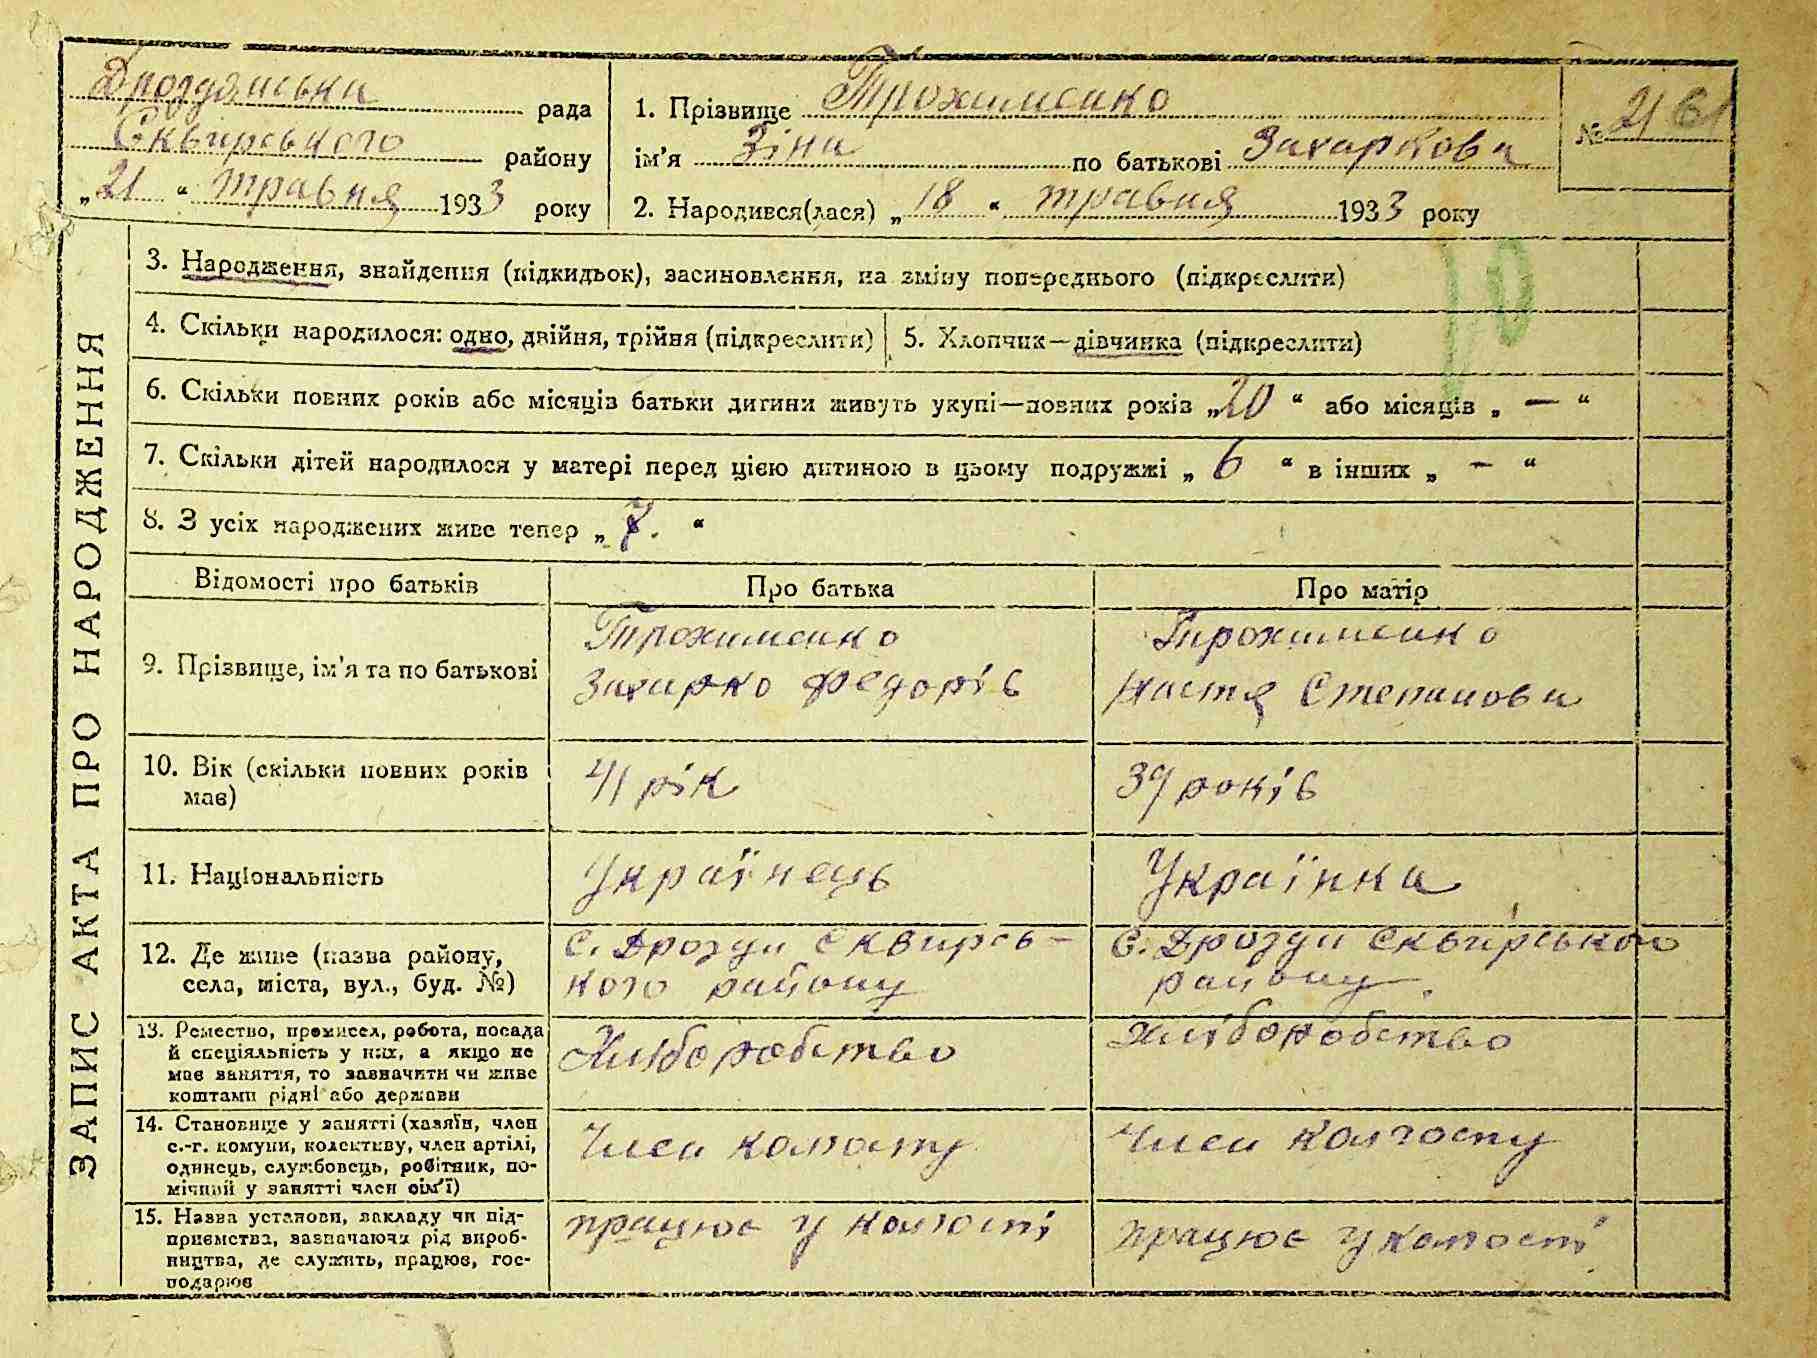 Дроздянська рада
Сквирського району
„21“ травня 1933 року
1. Прізвище Трохименко
ім'я Зіна по батькові Захаркова
2. Народився(лася) „18“ травня 1933 року
№ 21
ЗАПИС АКТА ПРО НАРОДЖЕННЯ
3. Народження, знайдення (підкидьок), засиновлення, на зміну попереднього (підкреслити)
4. Скільки народилося: одно, двійня, трійня (підкреслити)
5. Хлопчик—дівчинка (підкреслити)
6. Скільки повних років або місяців батьки дитини живуть укупі—повних років „20“ або місяців „—“
7. Скільки дітей народилося у матері перед цією дитиною в цьому подружжі „6“ в інших „—“
8. З усіх народжених живе тепер „7.“
Відомості про батьків
Про батька
Про матір
9. Прізвище, ім'я та по батькові
Трохименко
Захарко Федорів
Трохименко
Настя Степанова
10. Вік (скільки повних років
має)
41 рік
39 років
11. Національність
Українець
Українка
12. Де живе (назва району,
села, міста, вул., буд. №)
С. Дрозди Сквирсь-
кого району
С. Дрозди Сквирського
району.
13. Ремество, промисел, робота, посада
й спеціяльність у них, а якщо не
має заняття, то зазначити чи живе
коштами рідні або держави
Хліборобство
Хліборобство
14. Становище у занятті (хазяїн, член
с.-г. комуни, колективу, член артілі,
одинець, службовець, робітник, по-
мічний у занятті член сім'ї)
Член колгоспу
Член колгоспу
15. Назва установи, закладу чи під-
приємства, зазначаючи рід вироб-
ництва, де служить, працює, гос-
подарює
працює у колгоспі
працює у колгоспі